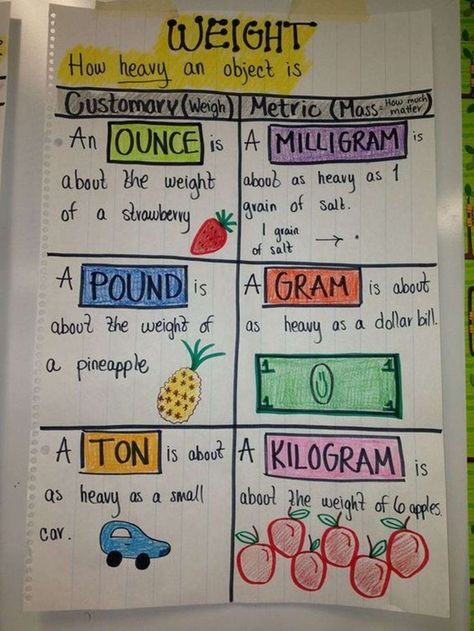 WEIGHT
How heavy an object is
Customary (Weigh)
Metric (Mass= How much matter)
An OUNCE is
about the weight
of a strawberry
A MILLIGRAM is
about as heavy as 1
grain of salt.
1 grain
of salt →
A POUND is
about the weight of
a pineapple
A GRAM is about
as heavy as a dollar bill.
1
1
A TON is about
as heavy as a small
car.
A KILOGRAM is
about the weight of 6 apples.